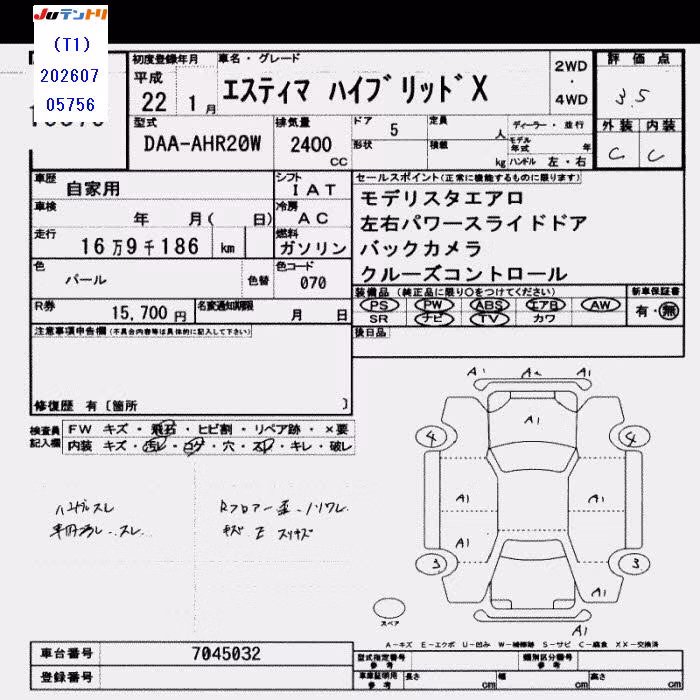 Juテントリ
(T1)
202607
05756
初度登録年月
平成
22 1月
車名・グレード
エスティマ ハイブリッド X
2WD
・
4WD
評価点
3.5
外装 内装
C C
型式
DAA-AHR20W
排気量
2400
CC
ドア 5 定員 人
形状 積載 kg
ディーラー・並行
モデル年式 年
ハンドル 左・右
車歴 自家用
シフト
IAT
車検 年 月( 日)
冷房 AC
走行 16万9千186 km
燃料
ガソリン
色 パール 色替
色コード
070
R券 15,700円
名変通知期限 月 日
セールスポイント(正常に機能するものに限ります)
モデリスタエアロ
左右パワースライドドア
バックカメラ
クルーズコントロール
装備品 (純正品に限り○をつけてください)
PS PW ABS エアB AW
SR ナビ TV カワ
新車保証書
有・無
後日品
注意事項申告欄(不具合内容等は具体的に記入して下さい)
修復歴 有〔箇所 〕
検査員
記入欄
FW キズ・飛石・ヒビ割・リペア跡・×要
内装 キズ・汚レ・コゲ・穴・スレ・キレ・破レ
ハンドルスレ
Rフロアー
キズ E
A1 A2 A1
A1
4 4
A1 A1
A1
3 3
A1
A1
スペア
A-キズ E-エクボ U-凹み W-補修跡 S-サビ C-腐食 XX-交換済
車台番号 7045032
登録番号
型式指定番号
参考
類別区分番号
参考
車庫証明用
参考
長さ cm 幅 cm 高さ cm